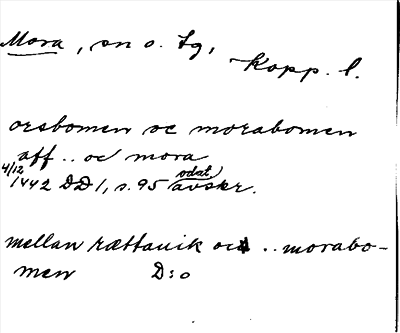 Mora, sn o. tg,
Kopp. l.
orsbomen oc morabomen
aff .. oc mora
4/12 1442 DD 1, s. 95 odat. avskr.
mellan rættauik och .. morabo-
men D:o